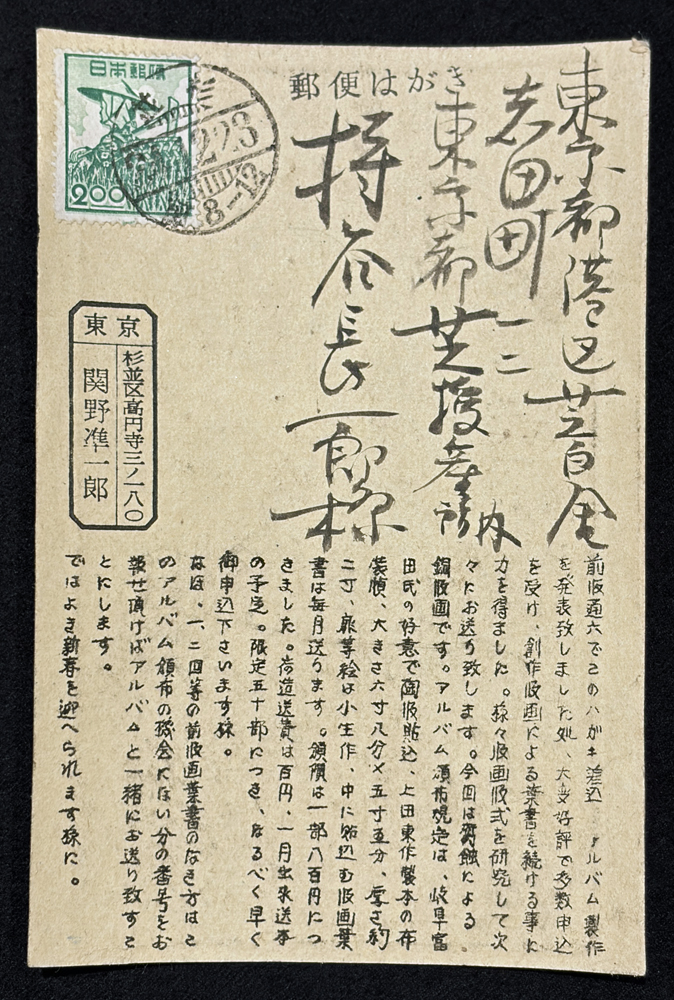 郵便はがき
日本郵便
200
223
8-12
東京都港区芝白金
志田町一二
東京都芝授産所内
持谷長一郎様
東京
杉並区高円寺三ノ一八〇
関野準一郎
前版画六でこのハガキ差込アルバム製作
を発表致しました処、大変好評で多数申込
を受け、創作版画による葉書を続ける事に
力を得ました。様々版画版式を研究して次
々にお送り致します。今回は腐蝕による
銅版画です。アルバム頒布規定は、岐阜富
田氏の好意で陶版貼込、上田東作製本の布
装幀、大きさ六寸八分×五寸五分、厚さ約
二寸、扉等絵は小生作、中に貼込む版画葉
書は毎月送ります。領價は一部八百円につ
きました。荷造送費は百円、一月出来送本
の予定。限定五十部につき、なるべく早く
御申込下さいます様。
なほ、一、二回等の前版画葉書のなき方はこ
のアルバム頒布の機会にない分の番号をお
報せ頂けばアルバムと一緒にお送り致すこ
とにします。
ではよき新春を迎へられます様に。